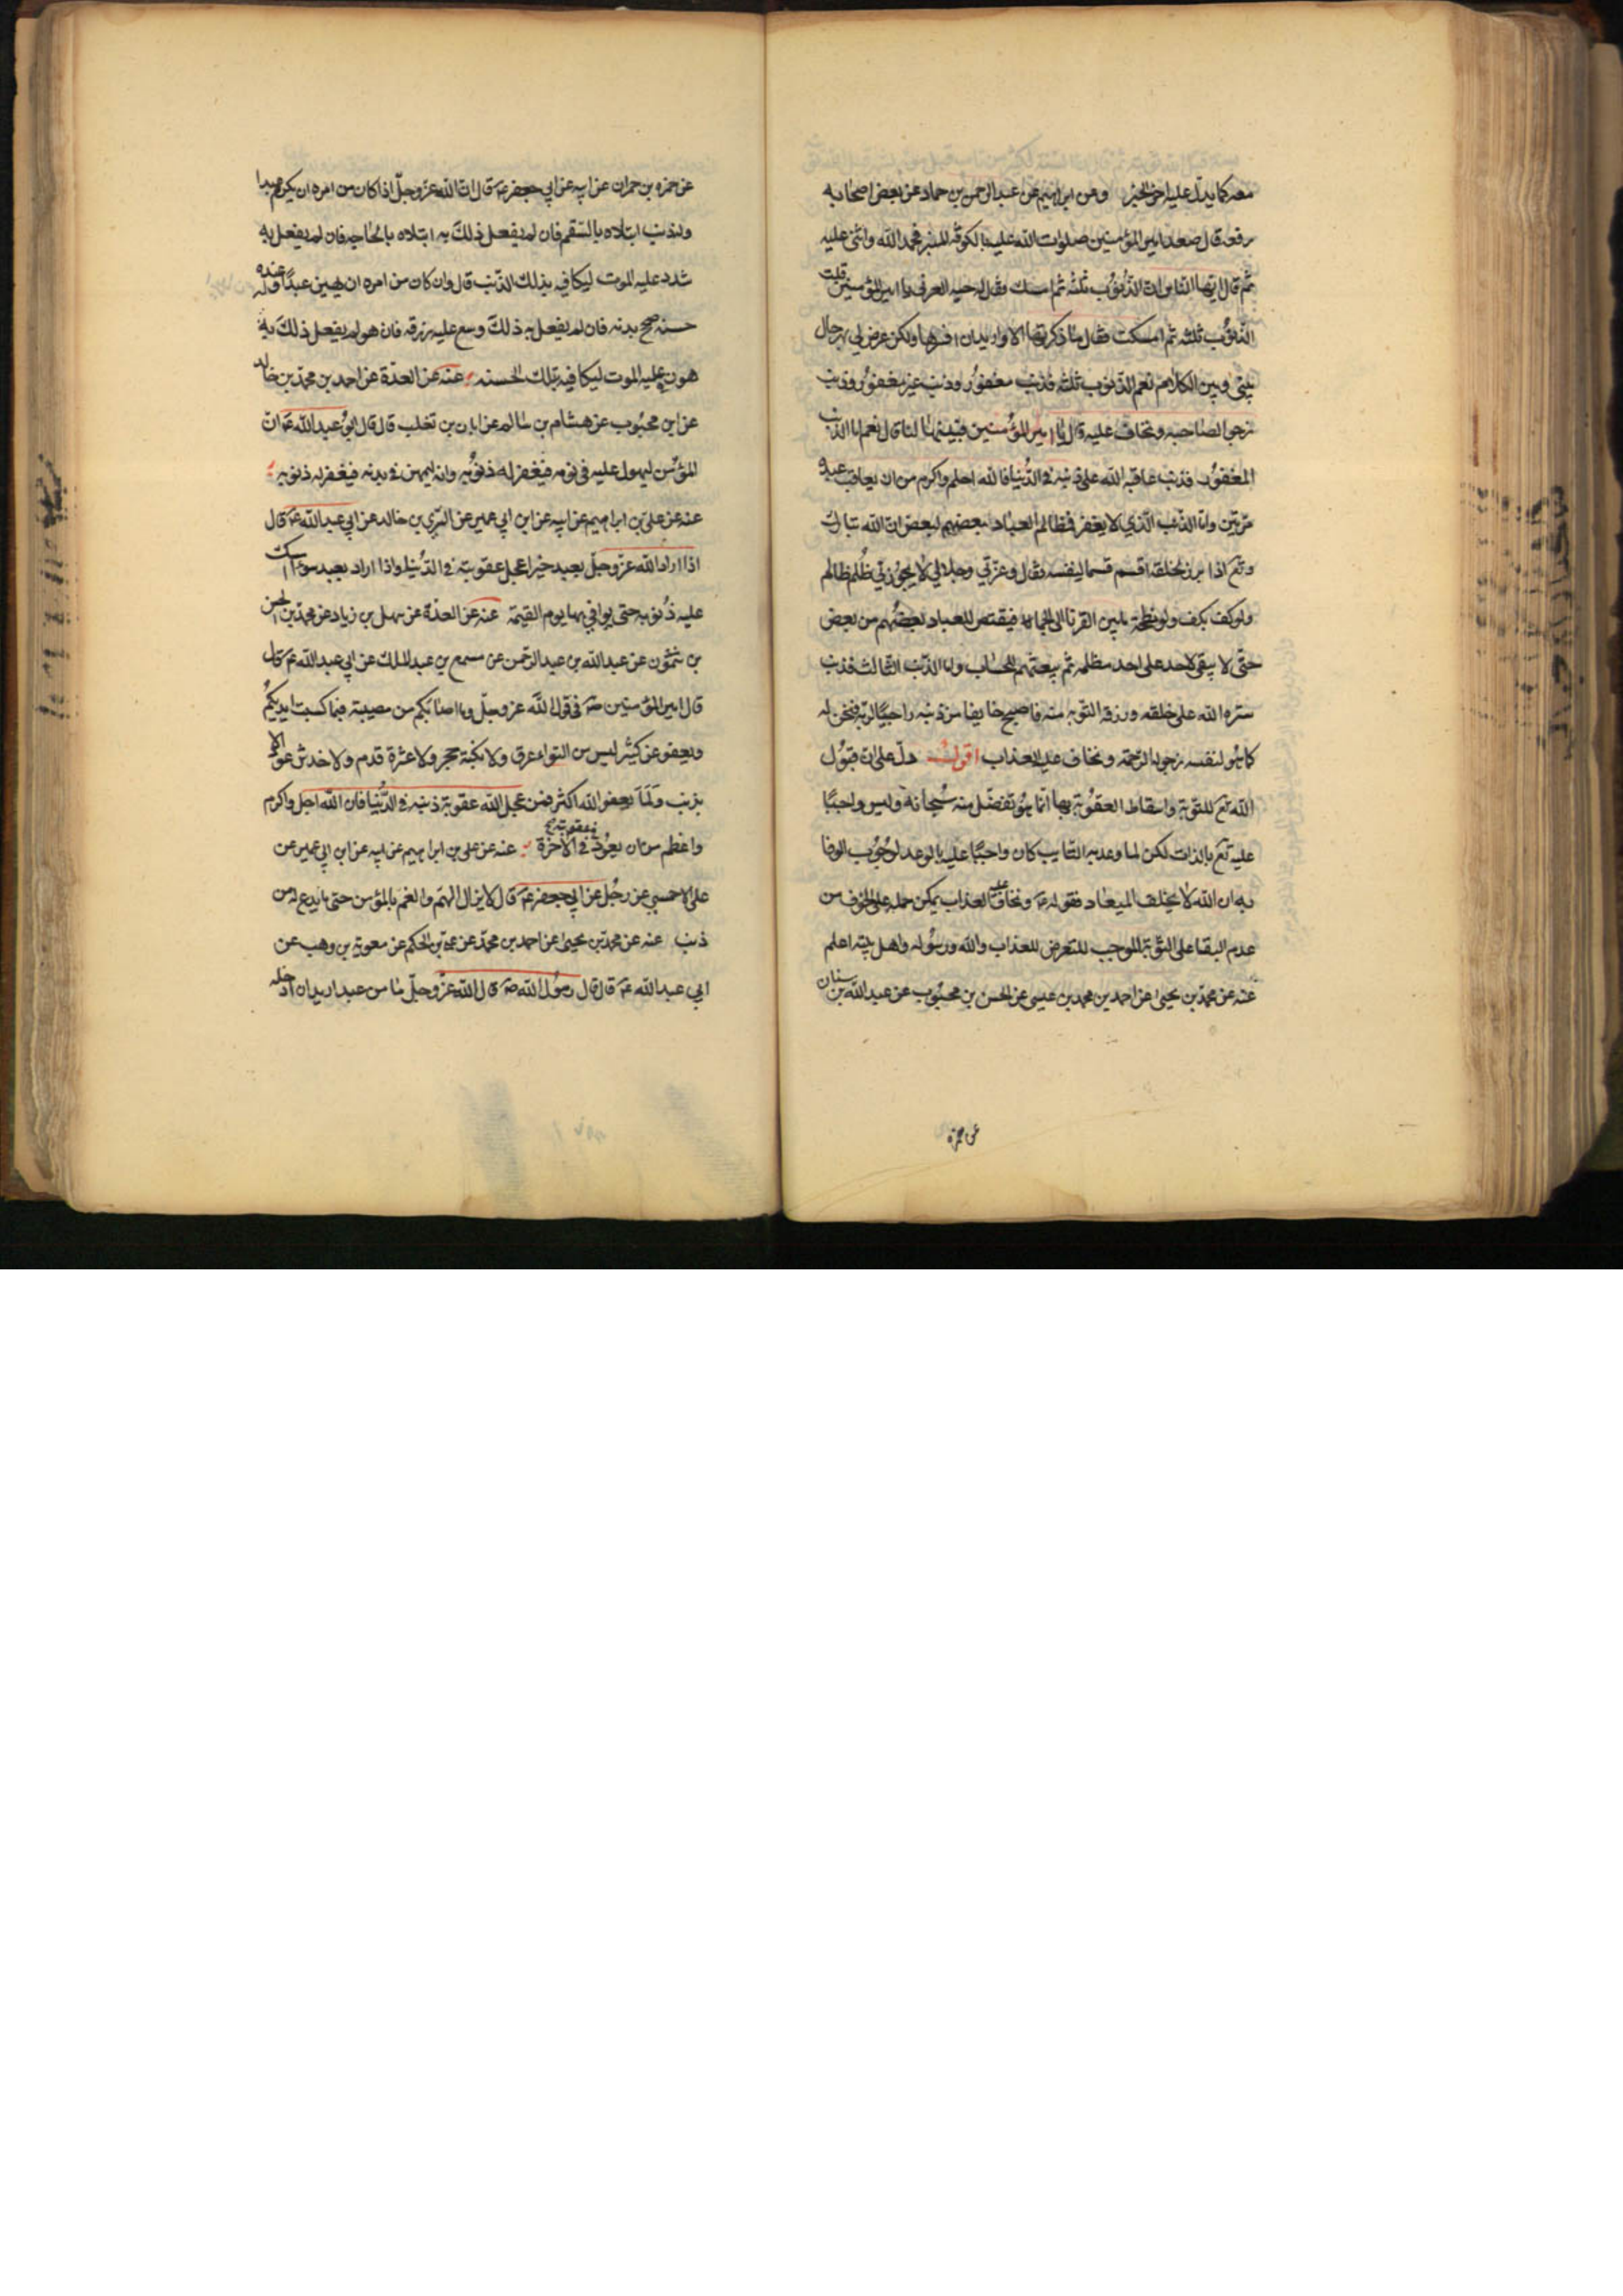 معه كما يدل عليه اخر الخبر وعن ابراهيم عن عبد الرحمن بن حماد عن بعض اصحابه
رفعه قال صعد امير المؤمنين صلوات الله عليه بالكوفة المنبر فحمد الله واثنى عليه
ثم قال ايها الناس ان الذنوب ثلثه ثم امسك فقال له حبه العرنى يا امير المؤمنين قلت
الذنوب ثلثه ثم امسكت فقال ما ذكرتها الا وانا اريد ان افسرها ولكن عرض لي بهر حال
بينى وبين الكلام نعم الذنوب ثلثه فذنب مغفور وذنب غير مغفور وذنب
نرجو الصاحبه ونخاف عليه قال يا امير المؤمنين فبينها لنا قال نعم اما الذنب
المغفور فذنب عاقبه الله على ذنبه في الدنيا فالله احلم واكرم من ان يعاقب عبده
مرتين واما الذنب الذي لا يغفر فظالم العباد بعضهم لبعض ان الله تبارك
وتع اذا برز لخلقه اقسم قسما لنفسه فقال وعزتي وجلالي لا يجوزني ظلم ظالم
ولو كف بكف ولو نطحة بين القرنا الى الجما فيقتص للعباد بعضهم من بعض
حتى لا يبقى لاحد على احد مظلمه ثم يبعثهم للحساب واما الذنب الثالث فذنب
ستره الله على خلقه ورزقه التوبه منه فاصبح خايفا من ذنبه راجيا لربه فنحن له
كما هو لنفسه نرجو له الرحمة ونخاف عليه العذاب اقول دل على ان قبول
الله تع للتوبة واسقاط العقوبة بها انما هو تفضل منه سبحانه وليس واجبا
عليه تع بالذات لكن لما وعد به التايب كان واجبا عليه بالوعد لوجوب الوفا
به ان الله لا يخلف الميعاد فقوله ع ونخاف عليه العذاب يمكن حمله على الخوف من
عدم البقا على التوبة الموجب للتعرض للعذاب والله ورسوله واهل بيته اعلم
عنه عن محمد بن يحيى عن احمد بن محمد بن عيسى عن الحسن بن محبوب عن عبد الله بن سنان
عن حمزه
عن حمزه بن حمران عن ابيه عن ابي جعفر ع قال ان الله عز وجل اذا كان من امره ان يكرم عبدا
وله ذنب ابتلاه بالسقم فان لم يفعل ذلك به ابتلاه بالحاجه فان لم يفعل به
شدد عليه الموت ليكافيه بذلك الذنب قال وان كان من امره ان يهين عبدا وله عنده
حسنه صحح بدنه فان لم يفعل به ذلك وسع عليه رزقه فان هو لم يفعل ذلك به
هون عليه الموت ليكافيه بتلك الحسنه عنه عن العدة عن احمد بن محمد بن خالد
عن ابن محبوب عن هشام بن سالم عن ابان بن تغلب قال قال ابو عبد الله ع ان
المؤمن ليهول عليه في نومه فيغفر له ذنوبه وانه ليمهن في بدنه فيغفر له ذنوبه
عنه عن علي بن ابراهيم عن ابيه عن ابن ابي عمير عن السري بن خالد عن ابي عبد الله ع قال
اذا اراد الله عز وجل بعبد خيرا عجل عقوبته في الدنيا واذا اراد بعبد سوءا امسك
عليه ذنوبه حتى يوافي بها يوم القيمة عنه عن العدة عن سهل بن زياد عن محمد بن الحسن
بن شمون عن عبد الله بن عبد الرحمن عن مسمع بن عبد الملك عن ابي عبد الله ع قال
قال امير المؤمنين ص في قول الله عز وجل وما اصابكم من مصيبة فبما كسبت ايديكم
ويعفو عن كثير ليس من التواء عرق ولا نكبة حجر ولا عثرة قدم ولا خدش عود الا
بذنب ولما يعفو الله اكثر فمن عجل الله عقوبة ذنبه في الدنيا فان الله اجل واكرم
واعظم من ان يعود في عقوبته في الاخرة عنه عن علي بن ابراهيم عن ابيه عن ابن ابي عمير عن
علي الاحمسي عن رجل عن ابي جعفر ع قال لا يزال الهم والغم بالمؤمن حتى ما يدع له من
ذنب عنه عن محمد بن يحيى عن احمد بن محمد عن علي بن الحكم عن معوية بن وهب عن
ابي عبد الله ع قال قال رسول الله ص قال الله عز وجل ما من عبد اريد ان ادخله